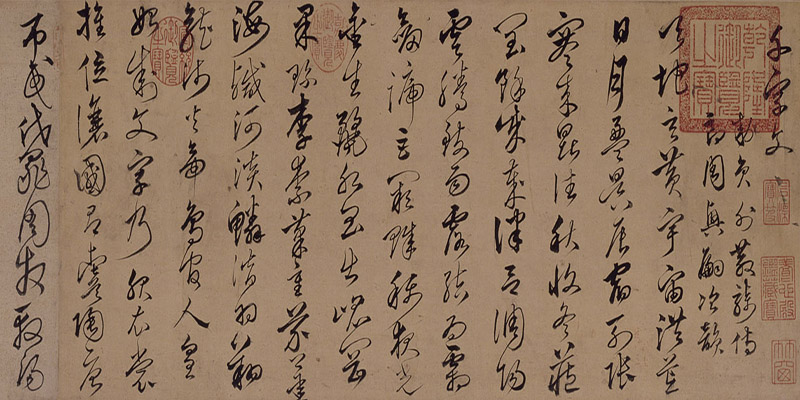 千字文
敕員外散騎侍
郎周興嗣次韻
天地玄黃宇宙洪荒
日月盈昃辰宿列張
寒來暑往秋收冬藏
閏餘成歲律呂調陽
雲騰致雨露結為霜
劍號巨闕珠稱夜光
金生麗水玉出崐岡
果珍李柰菜重芥薑
海鹹河淡鱗潛羽翔
龍師火帝鳥官人皇
始制文字乃服衣裳
推位讓國有虞陶唐
弔民伐罪周發殷湯
乾隆御覽之寶